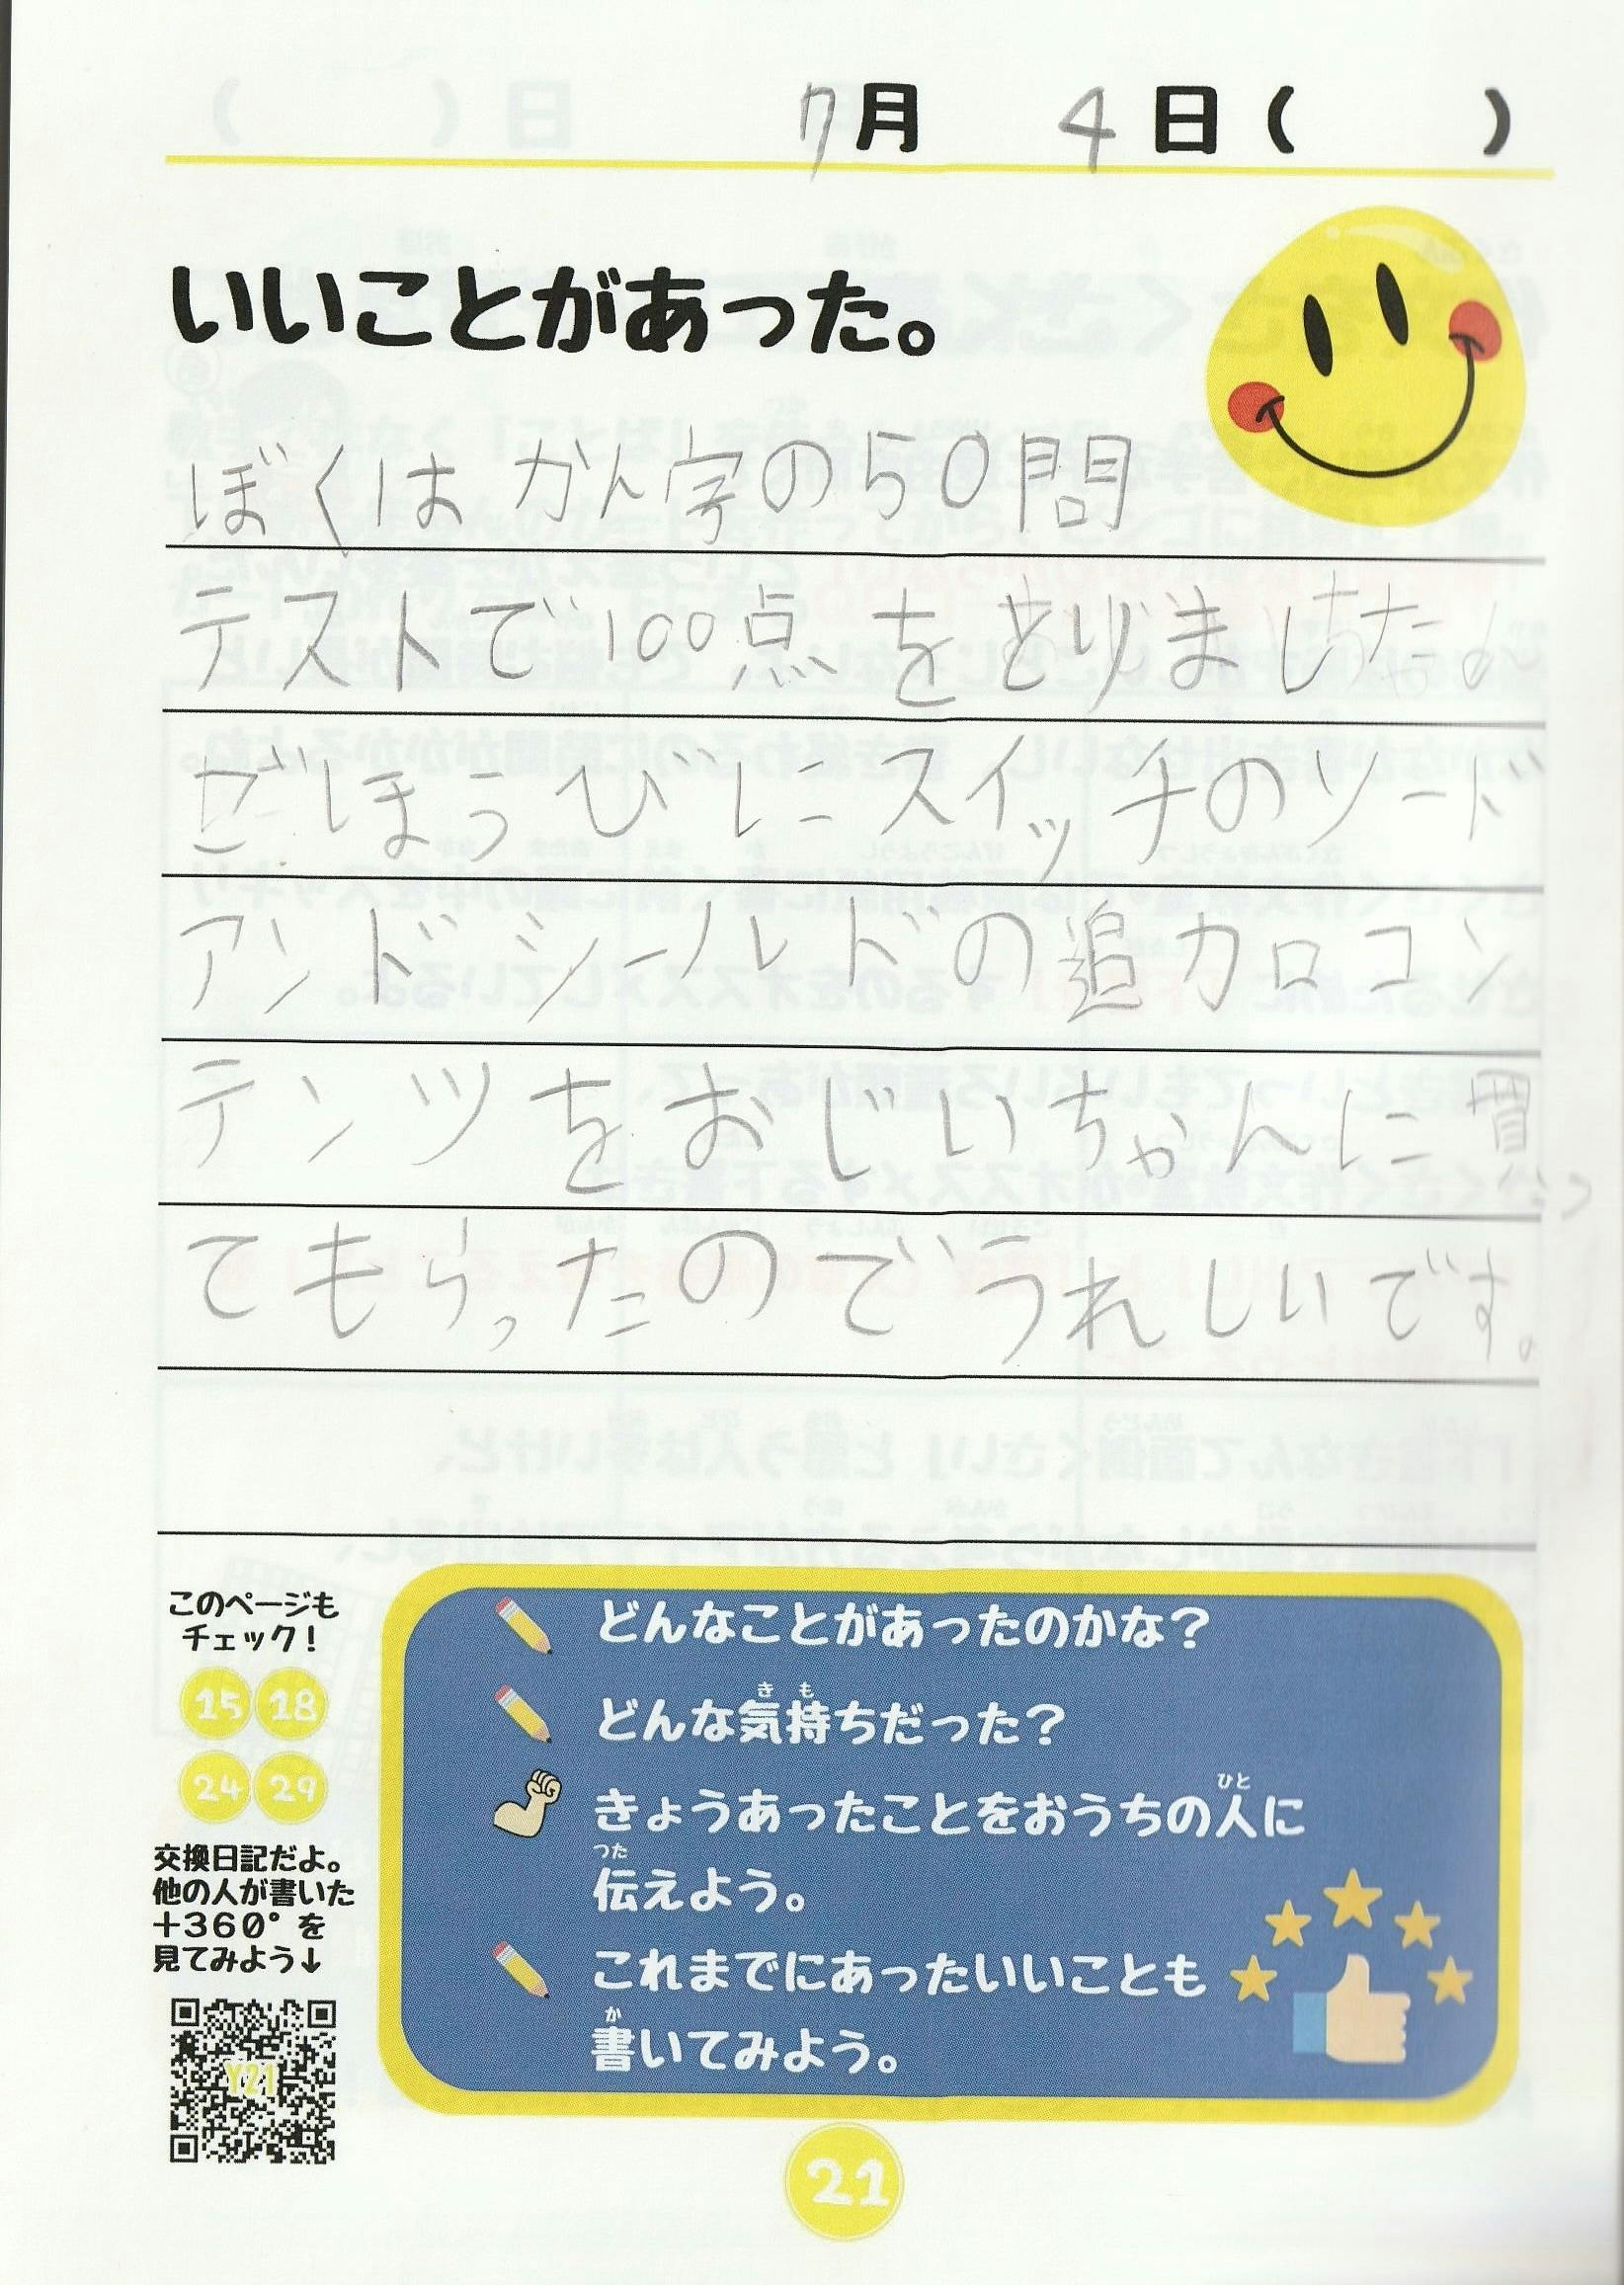 7月 4日( )
いいことがあった。
ぼくはかん字の50問
テストで100点をとりました。
ごほうびにスイッチのソード
アンドシールドの追加コン
テンツをおじいちゃんに買っ
てもらったのでうれしいです。
このページも
チェック!
15 18
24 29
交換日記だよ。
他の人が書いた
+360°を
見てみよう↓
Y21
どんなことがあったのかな?
きも
どんな気持ちだった?
ひと
きょうあったことをおうちの人に
つた
伝えよう。
これまでにあったいいことも
か
書いてみよう。
21